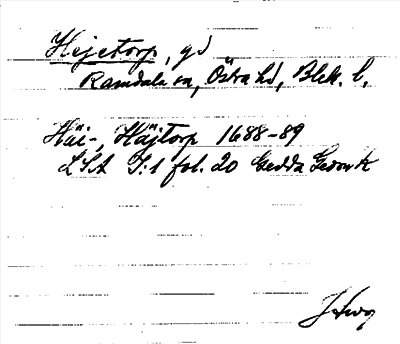 Hejetorp, gd
Ramdala sn, Östra hd, Blek. l.
Häi-, Häjtorp 1688-89
LSA I:1 fol. 20 Gedda Geom k